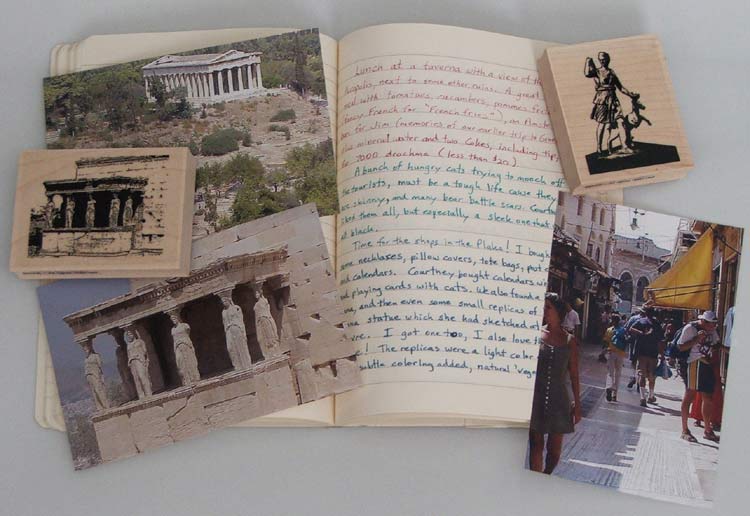 Lunch at a taverna with a view of the
Acropolis, next to some other ruins. A great
med with tomatoes, cucumbers, pommes frites
(fancy French for "French fries"), an Amstel
for Jim (memories of our earlier trip to
plus mineral water and two Cokes, including tip,
for 7000 drachma (less than $20)
A bunch of hungry cats trying to mooch off
the tourists, must be a tough life cause they
are skinny, and many bear battle scars. Court
likes them all, but especially a sleek one that
all black.
Time for the shops in the Plaka! I bought
some necklaces, pillow covers, tote bags, post
and calendars. Courtney bought calendars
and playing cards with cats. We also found a
and then even some small replicas of
statue which she had sketched at
I got one too, I also love th
! The replicas were a light color
subtle coloring added, natural 'vege